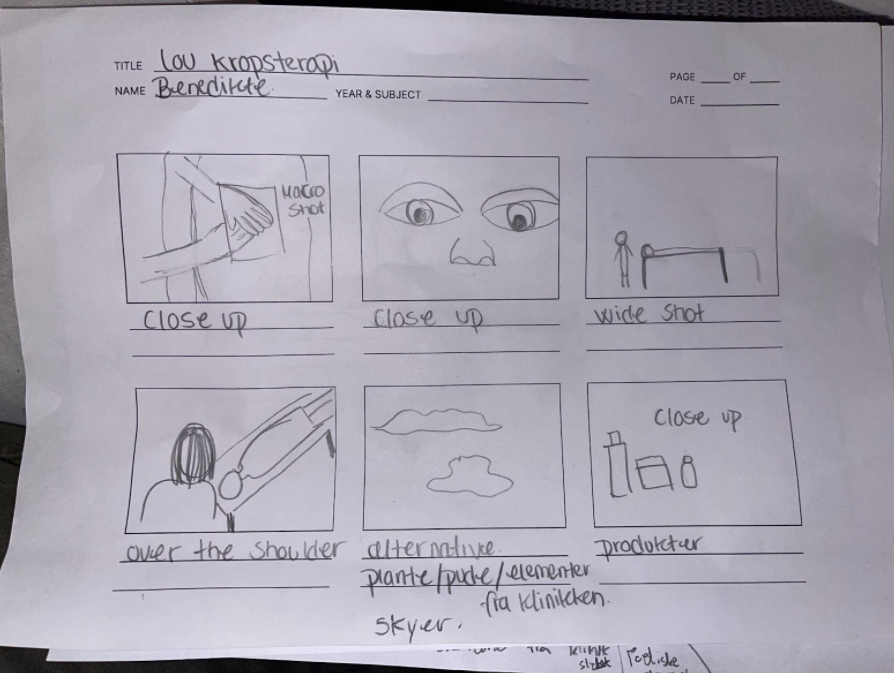 TITLE Lou Kropsterapi
NAME Benedikte YEAR & SUBJECT
PAGE ___ OF ___
DATE
Macro
shot
close up
close up
wide shot
over the shoulder
alternative
plante/pude/elementer
fra klinikken.
skyer.
close up
produkter
fra klinik